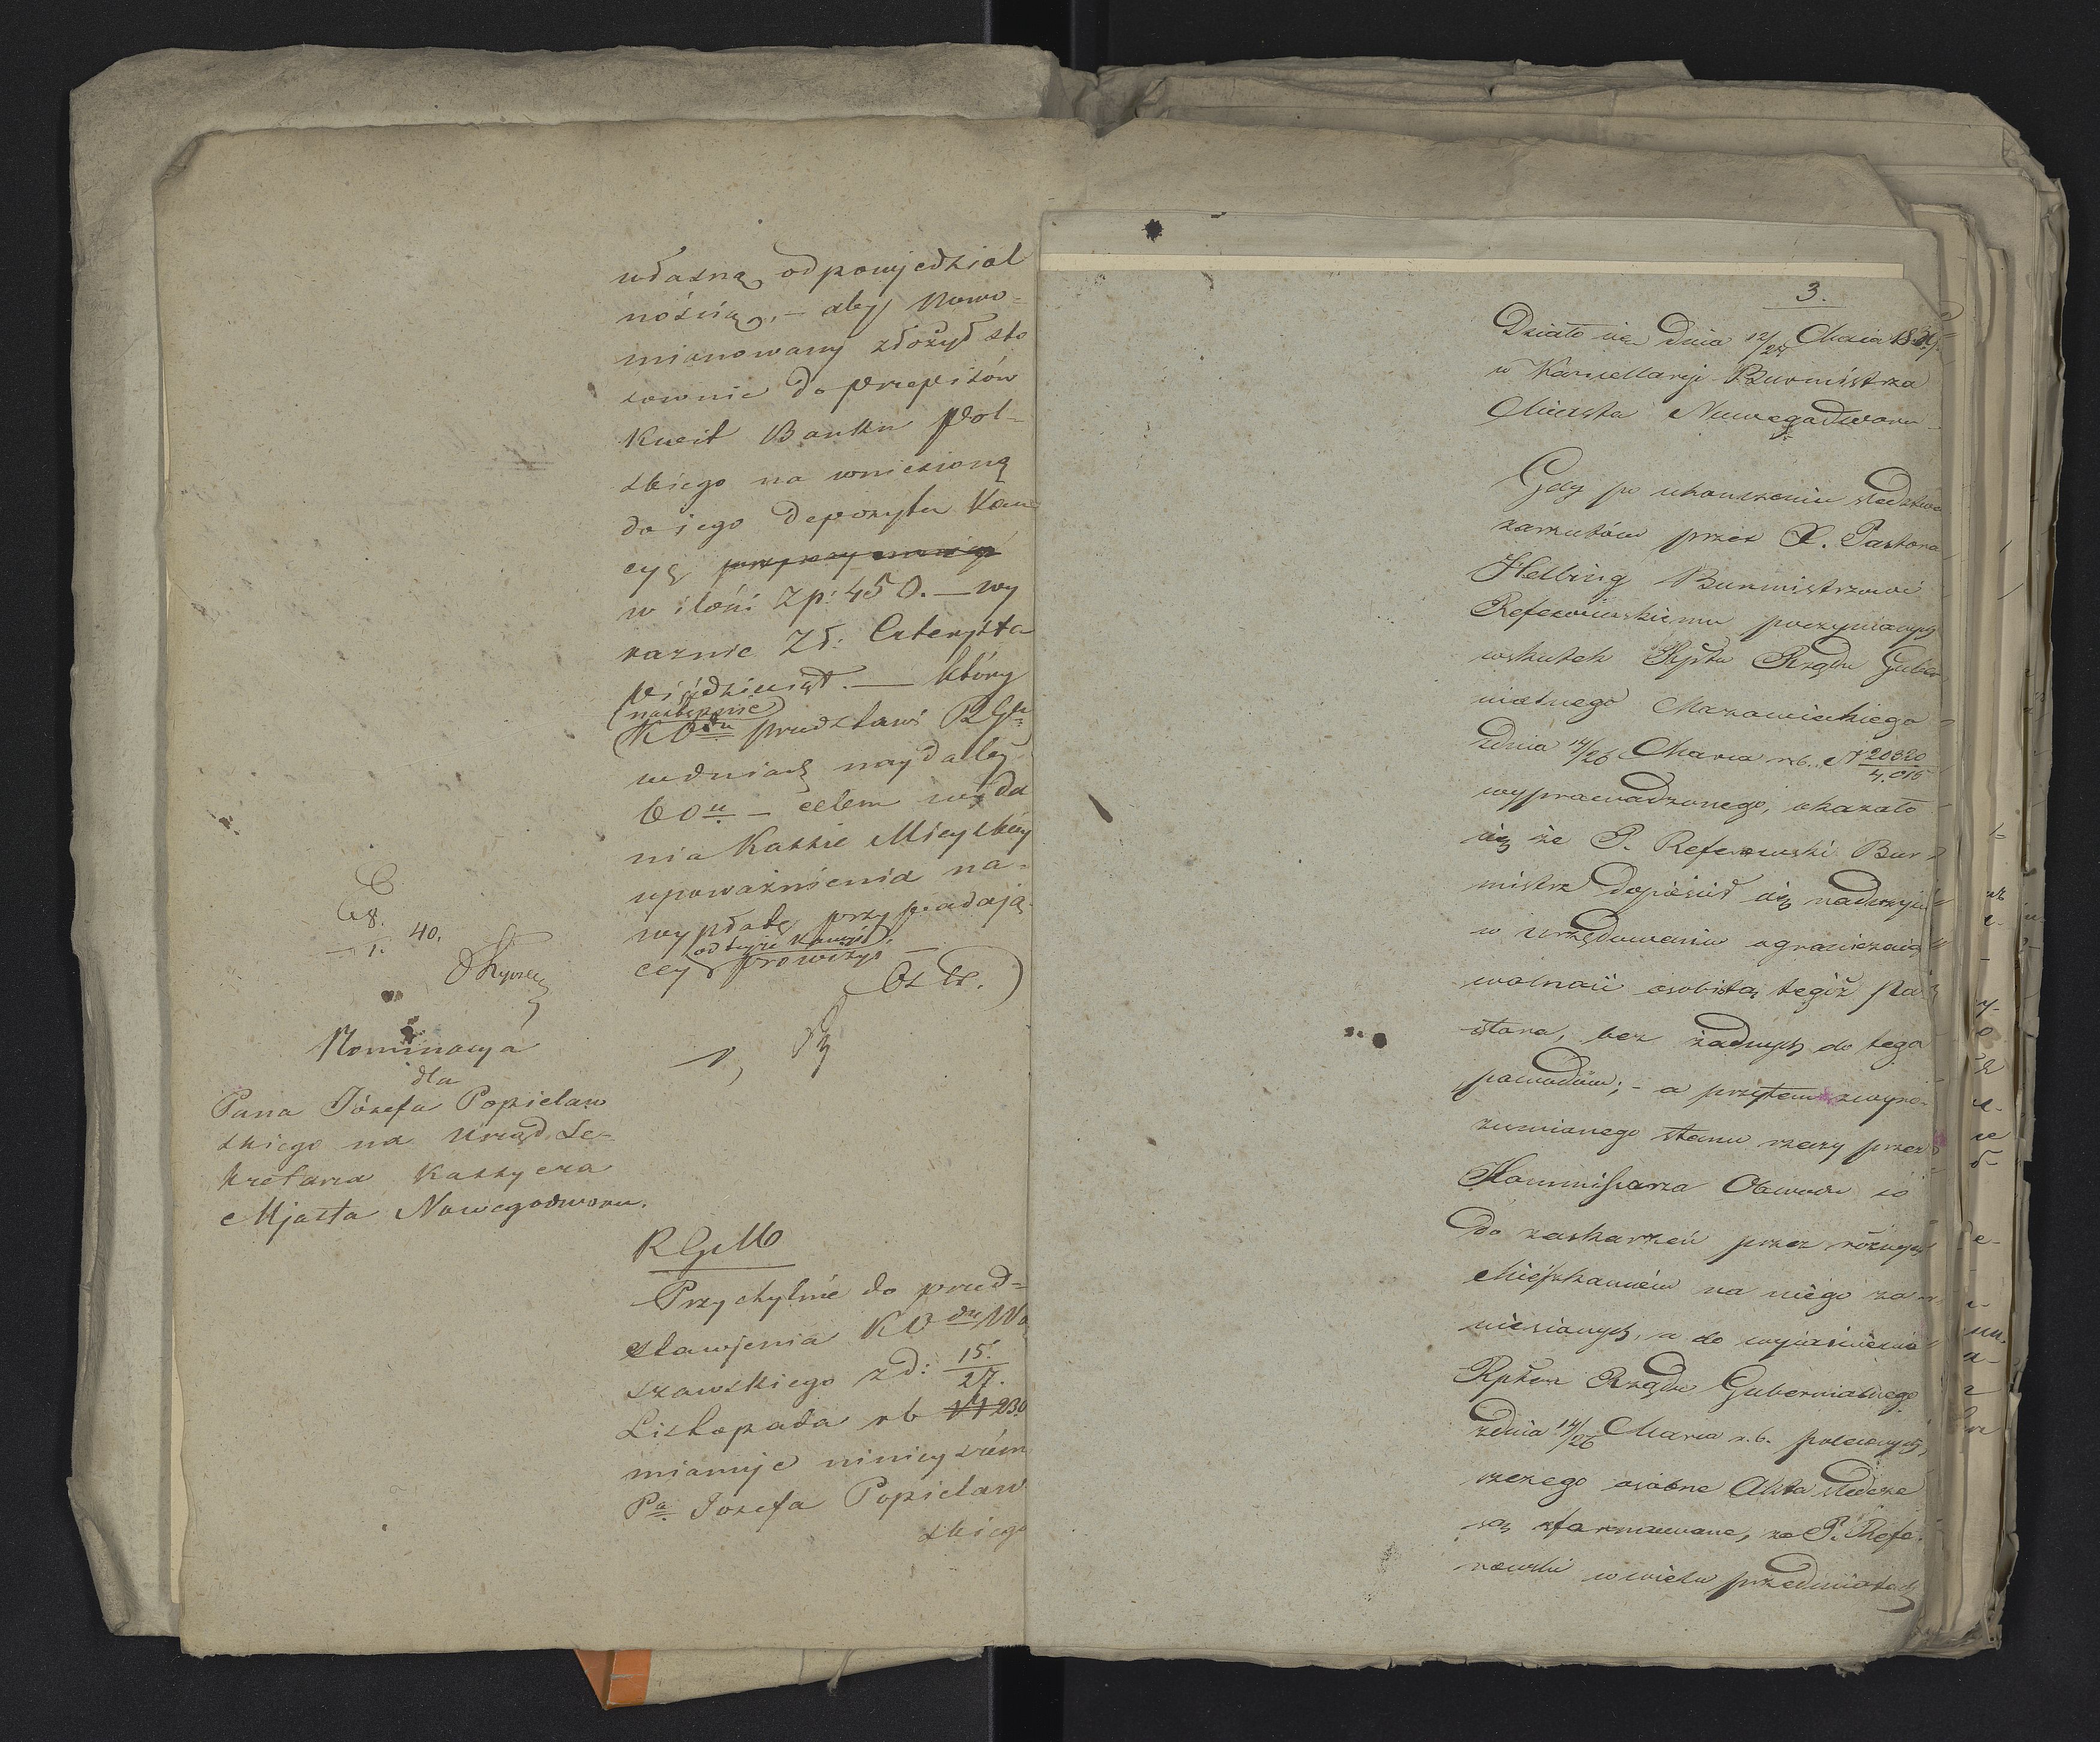 własną odpowiedzial
nością, – aby Nowo=
mianowany złożył sto
sownie do przepisów
Kwit Banku Pol-
skiego na wniesioną
do iego depozytu Kau
cyę
w ilości Zp: 450. – wy
raznie Zł: Czterysta
pięćdziesiąt. — który
następnie
KOdu przedstawi RGu
w dniach naydaley
60u – celem wyda
nia Kassie Mieyskiey
upoważnienia na=
wypłatę przypadaią-
cey od teyże Kaucyi prowizyi.
C
68. 40.
1.
Nominacya
dla
Pana Józefa Popielaw
skiego na Urząd Se-
kretarza Kassyera
Mjasta Nowegodworu.
RGM
Przychylnie do przed=
stawjenia KOdu Wa
szawskiego z d: 15./27.
Listopada rb N 230
mianuje ninieyszem
Pa Jozefa Popielaw
skiego
3.
Działo się Dnia 12/24 Maia 18
w Kancellaryi Burmistrza
Miasta Nowegodworu
Gdy po ukończeniu śledztwa
zarzutów przez X. Pastora
Helbing Burmistrzowi
Referowskiemu poczynionych
wskutek Rptu Rządu Guber
nialnego Mazowieckiego
zdnia 14/26 Marca r.b. N 20820/4.015
wyprowadzonego, okazało
się że P. Referowski Bur
mistrz dopuścił się nadużyć
w urzędowaniu ograniczaiąc
wolność osobistą tegoż Pa
stora, bez żadnych do tego
powodów; – a przytem zwyro-
zumianego stanu rzeczy przez
Kommissarza Obwodu co
do zaskarżeń przez różnych
Mieszkańców na niego za
niesionych, a do wyjaśnienia
Rptem Rządu Gubernialnego
zdnia 14/26 Marca r.b. poleconych,
z czego osobne Akta śledcze
są sformowane, że P. Refe-
rowski w wielu przedmiotach